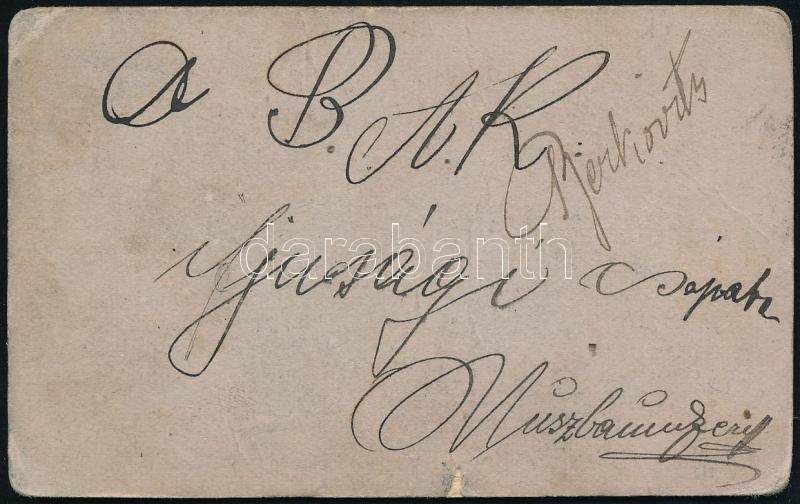 a B. A. K.
Berkovits
ifjusági csapata
darabanth
Nuszbaum Jenő